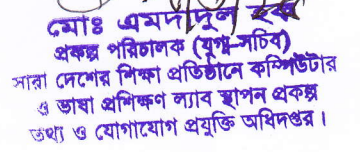 মোঃ এমদাদুল হক
প্রকল্প পরিচালক (যুগ্ম-সচিব)
সারা দেশের শিক্ষা প্রতিষ্ঠানে কম্পিউটার
ও ভাষা প্রশিক্ষণ ল্যাব স্থাপন প্রকল্প
তথ্য ও যোগাযোগ প্রযুক্তি অধিদপ্তর।